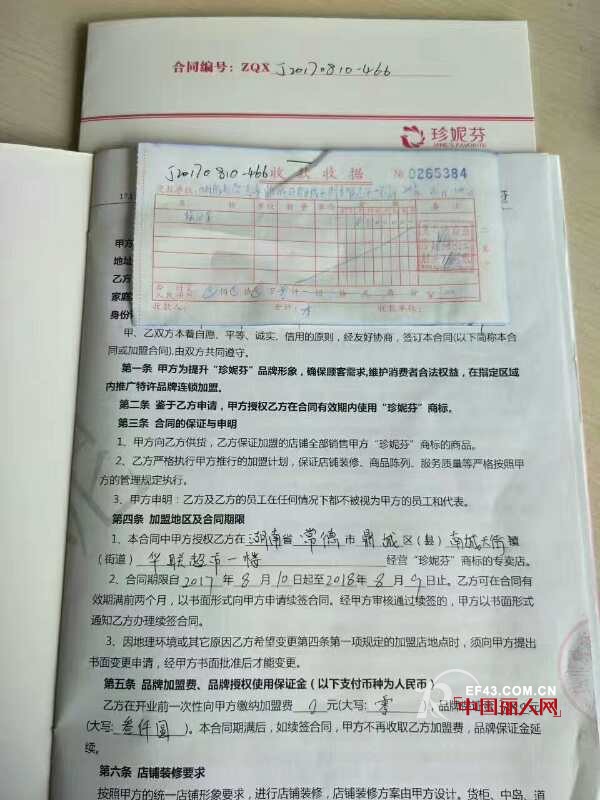 合同编号：ZQX J20170810-466
珍妮芬
J20170810-466 收款收据 № 0265384
甲方
地址
乙方
家庭
身份
甲、乙双方本着自愿、平等、诚实、信用的原则，经友好协商，签订本合同(以下简称本合
同或加盟合同),由双方共同遵守。
第一条 甲方为提升“珍妮芬”品牌形象，确保顾客需求,维护消费者合法权益，在指定区域
内推广特许品牌连锁加盟。
第二条 鉴于乙方申请，甲方授权乙方在合同有效期内使用“珍妮芬”商标。
第三条 合同的保证与申明
1、甲方向乙方供货，乙方保证加盟的店铺全部销售甲方“珍妮芬”商标的商品。
2、乙方严格执行甲方推行的加盟计划，保证店铺装修、商品陈列、服务质量等严格按照甲
方的管理规定执行。
3、甲方申明：乙方及乙方的员工在任何情况下都不被视为甲方的员工和代表。
第四条 加盟地区及合同期限
1、本合同中甲方授权乙方在 湖南 省 常德 市 鼎城 区（县）南城天街 镇
（街道） 华联超市一楼 经营“珍妮芬”商标的专卖店。
2、合同期限自 2017 年 8 月 10 日起至 2018 年 8 月 9 日止。乙方可在合同有
效期满前两个月，以书面形式向甲方申请续签合同。经甲方审核通过续签的，甲方以书面形式
通知乙方办理续签合同。
3、因地理环境或其它原因乙方希望变更第四条第一项规定的加盟店地点时，须向甲方提出
书面变更申请，经甲方书面批准后才能变更。
第五条 品牌加盟费、品牌授权使用保证金（以下支付币种为人民币）
乙方在开业前一次性向甲方缴纳加盟费 0 元(大写: 零 )，品牌
(大写: 叁仟圆 )。本合同期满后，如续签合同，甲方不再收取乙方加盟费，品牌保证金延
续。
第六条 店铺装修要求
按照甲方的统一店铺形象要求，进行店铺装修，店铺装修方案由甲方设计。货柜、中岛、道
EF43.COM.CN
中国丽人网